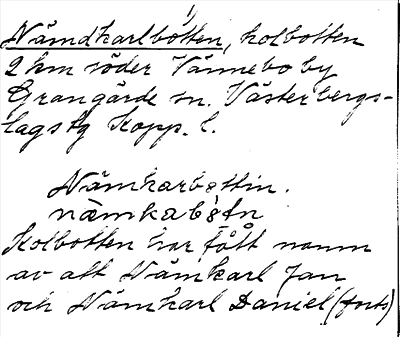 Nämdkarlbotten, kolbotten
2 km söder Vännebo by
Grangärde sn. Västerbergs-
lags tg Kopp. l.
Nämkarbottin.
nämkabòtn
Kolbotten har fått namn
av att Nämkarl Jan
och Nämkarl Daniel (forts)